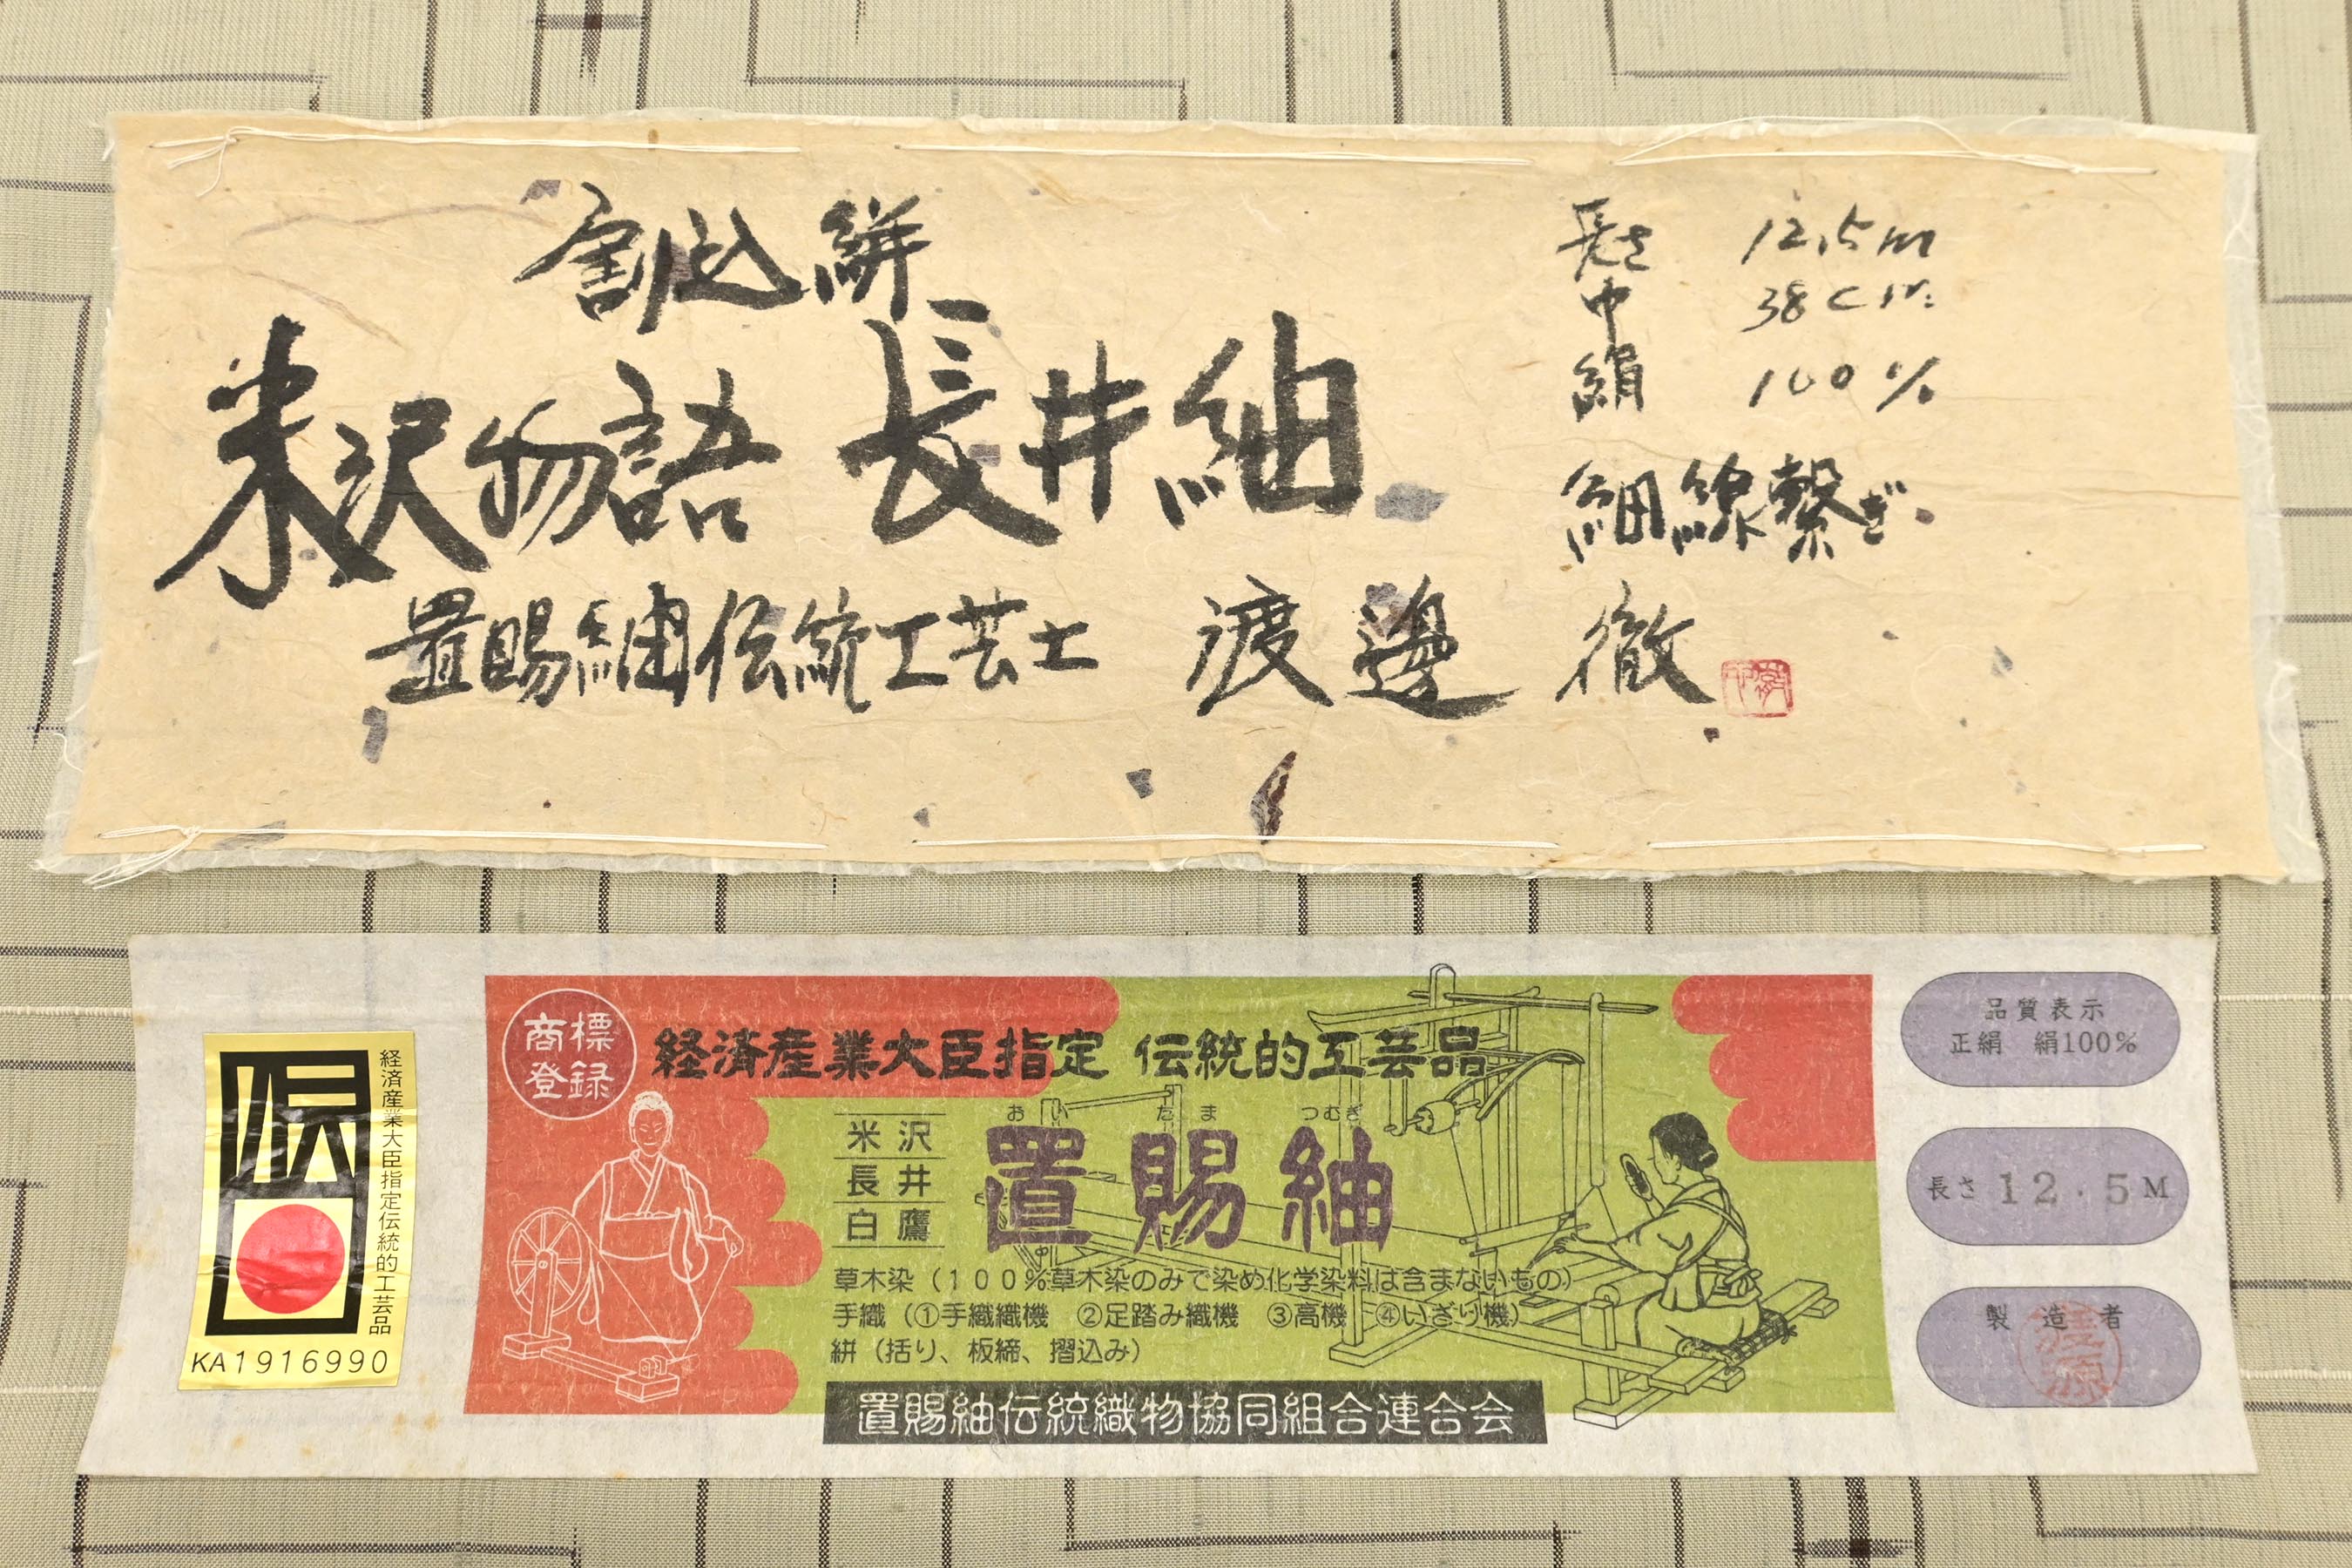 割込絣
米沢物語 長井紬
置賜紬伝統工芸士 渡邊 徹
長さ 12.5m
巾 38cm
絹 100%
細線繋ぎ
伝
経済産業大臣指定伝統的工芸品
KA1916990
商標
登録
経済産業大臣指定 伝統的工芸品
米沢
長井
白鷹
おい たま つむぎ
置賜紬
草木染(100%草木染のみで染め化学染料は含まないもの)
手織(①手織織機 ②足踏み織機 ③高機 ④いざり機)
絣(括り、板締、摺込み)
置賜紬伝統織物協同組合連合会
品質表示
正絹 絹100%
長さ 12.5M
製造者